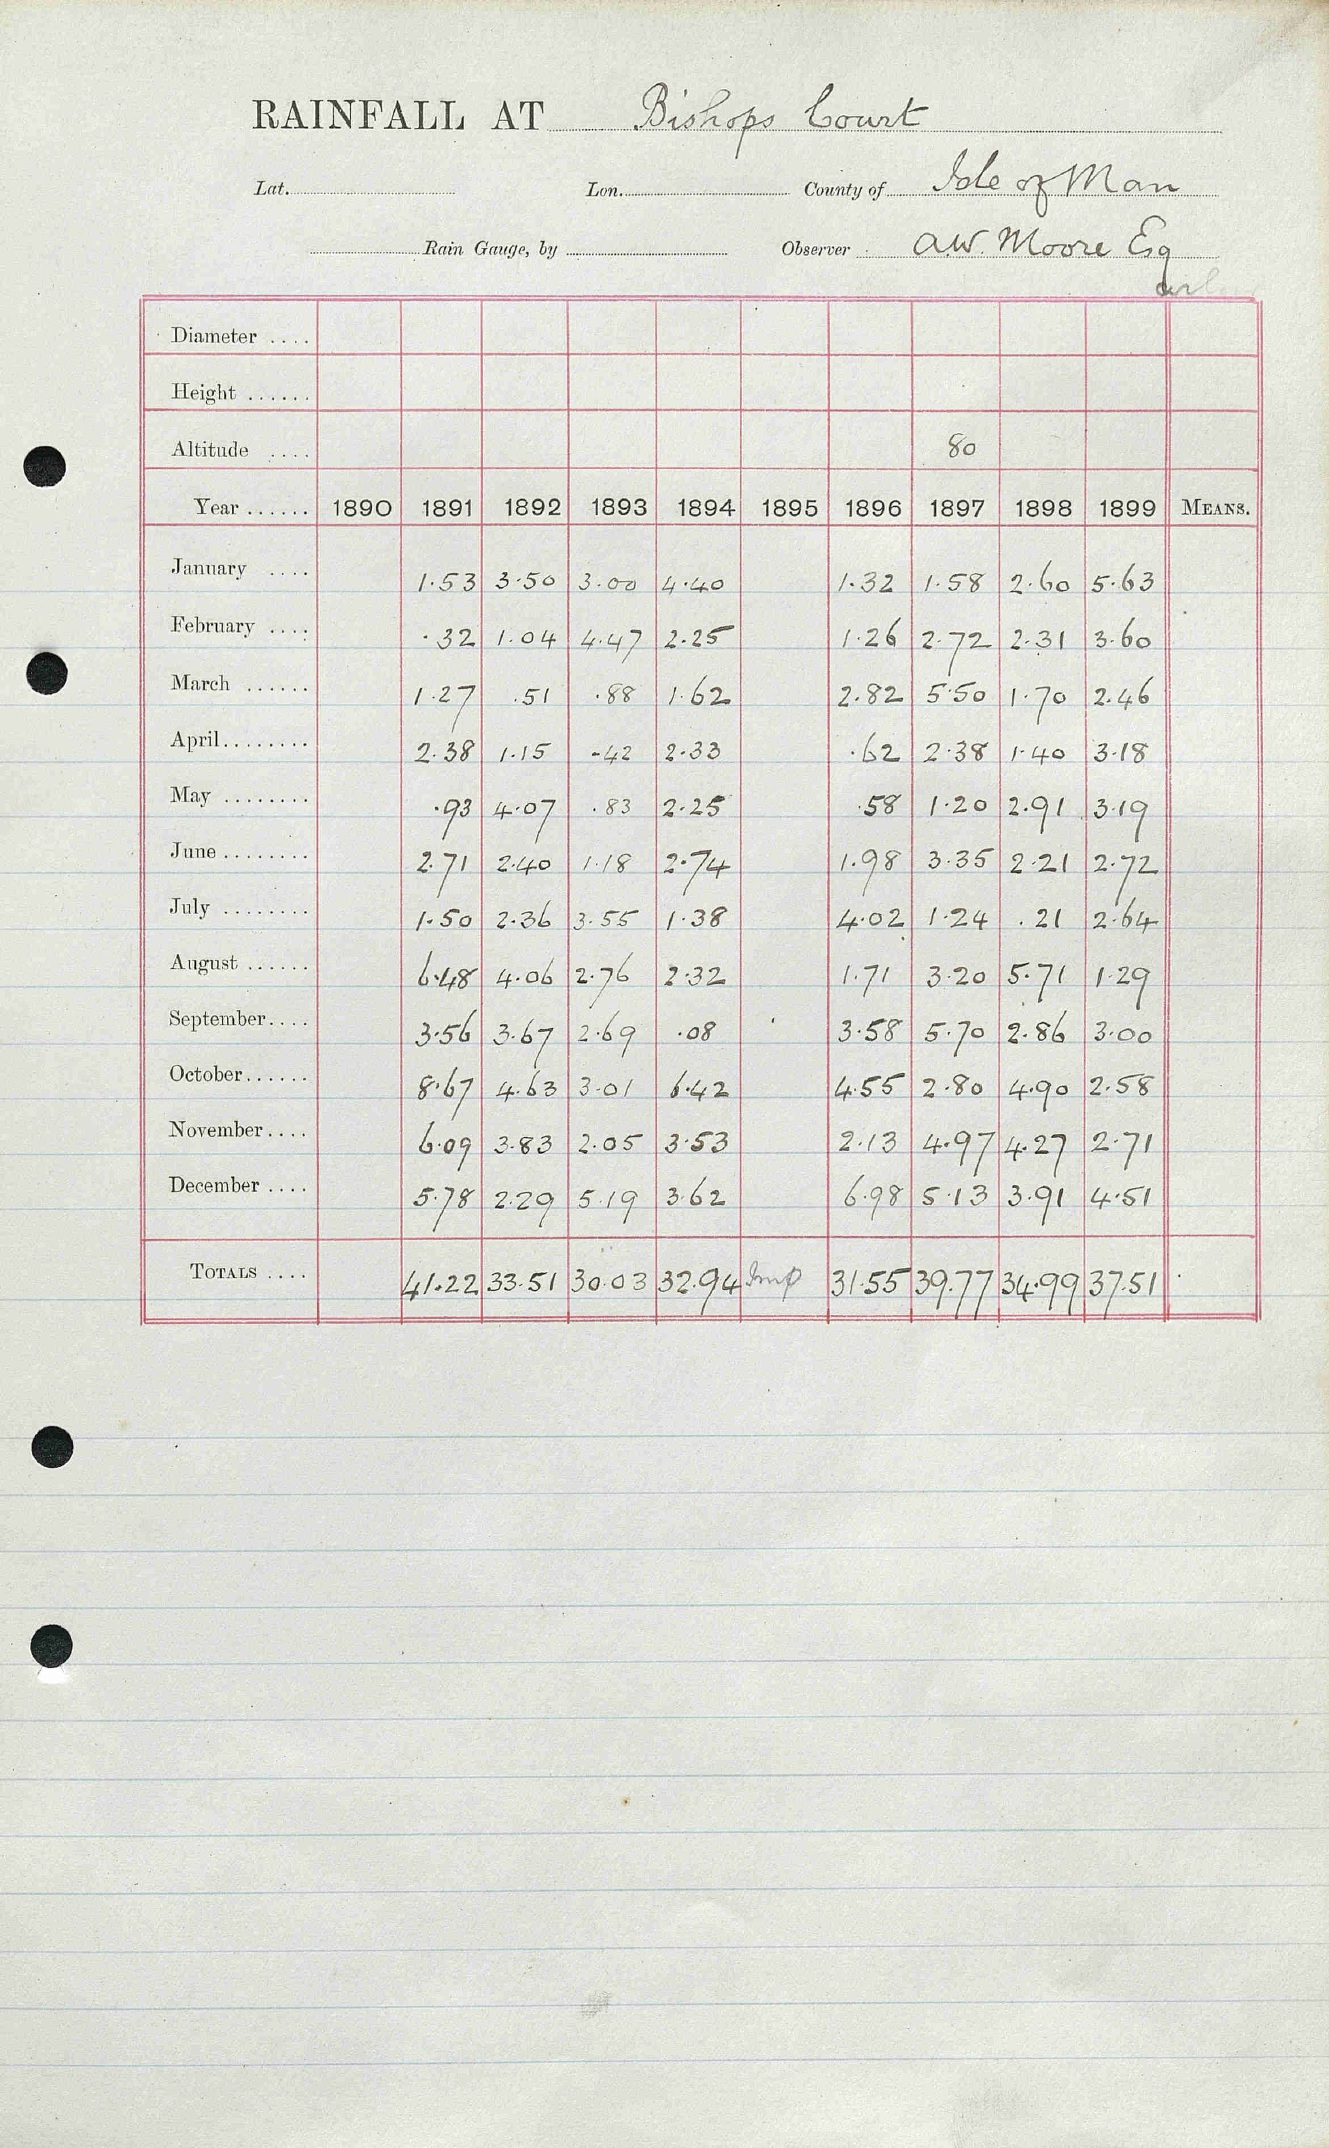 RAINFALL AT Bishops Court
Lat. Lon. County of Isle of Man
Rain Gauge, by Observer A.W. Moore Esq
Diameter ....
Height ......
Altitude .... 80
Year ...... 1890 1891 1892 1893 1894 1895 1896 1897 1898 1899 MEANS.
January .... 1.53 3.50 3.00 4.40 1.32 1.58 2.60 5.63
February .... .32 1.04 4.47 2.25 1.26 2.72 2.31 3.60
March ...... 1.27 .51 .88 1.62 2.82 5.50 1.70 2.46
April........ 2.38 1.15 .42 2.33 .62 2.38 1.40 3.18
May ........ .93 4.07 .83 2.25 .58 1.20 2.91 3.19
June ........ 2.71 2.40 1.18 2.74 1.98 3.35 2.21 2.72
July ........ 1.50 2.36 3.55 1.38 4.02 1.24 .21 2.64
August ...... 6.48 4.06 2.76 2.32 1.71 3.20 5.71 1.29
September.... 3.56 3.67 2.69 .08 3.58 5.70 2.86 3.00
October...... 8.67 4.63 3.01 6.42 4.55 2.80 4.90 2.58
November.... 6.09 3.83 2.05 3.53 2.13 4.97 4.27 2.71
December .... 5.78 2.29 5.19 3.62 6.98 5.13 3.91 4.51
TOTALS .... 41.22 33.51 30.03 32.94 Imp 31.55 39.77 34.99 37.51